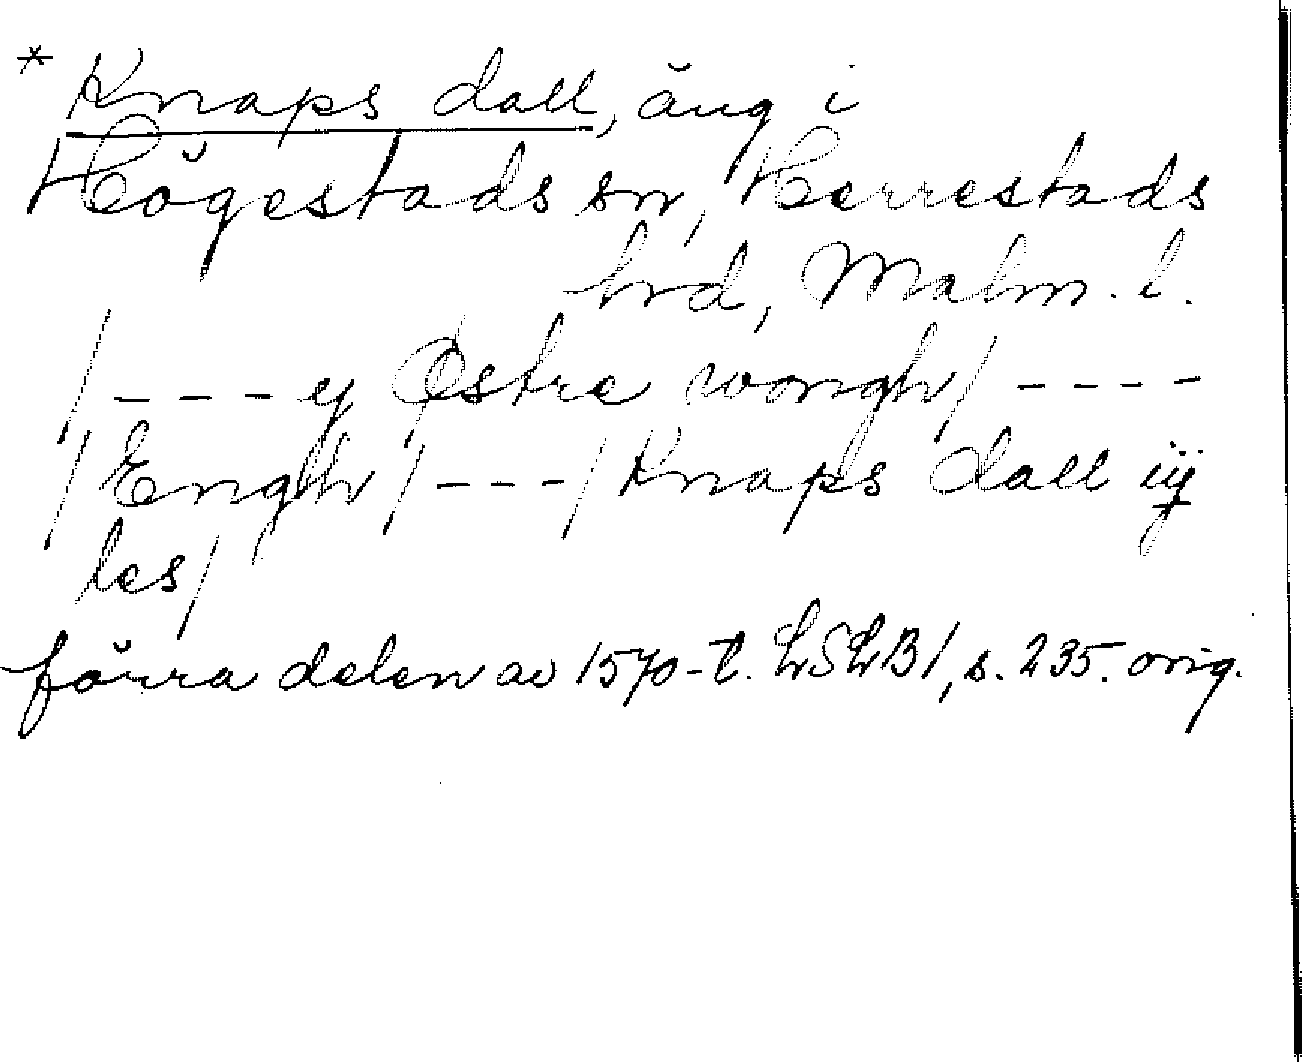 * Knaps dall, äng i
Högestads sn, Herrestads
hrd, Malm. l.
/ - - - y Østre wongh / - - - -
/ Engh / - - - / Knaps dall iij
les /
förra delen av 1570-t. LSLB1, s. 235. orig.